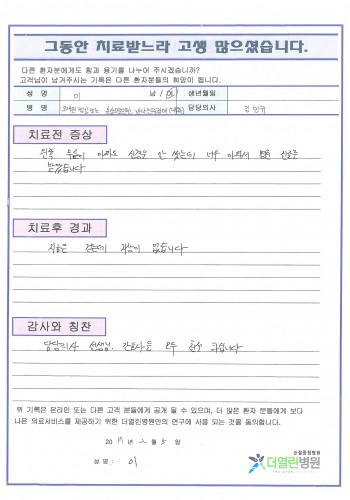 그동안 치료받느라 고생 많으셨습니다.
다른 환자분에게도 힘과 용기를 나누어 주시겠습니까?
고객님이 남겨주시는 기록은 다른 환자분들의 희망이 됩니다.
성 명 이 남/여 생년월일
병 명 담당의사 김민규
치료전 증상
왼쪽 무릎이 아파도 신경을 안 썼는데 너무 아파서 병원 진료를
받았습니다
치료후 경과
지금은 걷는데 지장이 없습니다
감사와 칭찬
담당의사 선생님, 간호사분 모두 친절 하십니다
위 기록은 온라인 또는 다른 고객 분들에게 공개 될 수 있으며, 더 많은 환자 분들에게 보다
나은 의료서비스를 제공하기 위한 더열린병원만의 연구에 사용 되는 것을 동의합니다.
20 19 년 2 월 5 일
성 명 : 이
관절종합병원
더열린병원